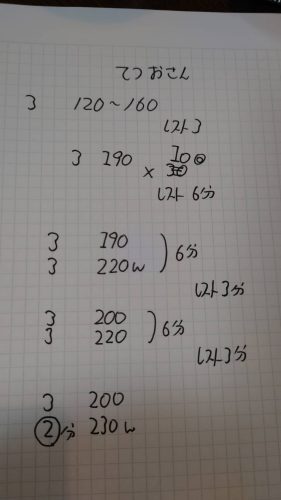 てつおさん
3 120～160
レスト3
3 190 × 100
レスト 6分
3 190
3 220w ) 6分
レスト3分
3 200
3 220 ) 6分
レスト3分
3 200
②分 230w